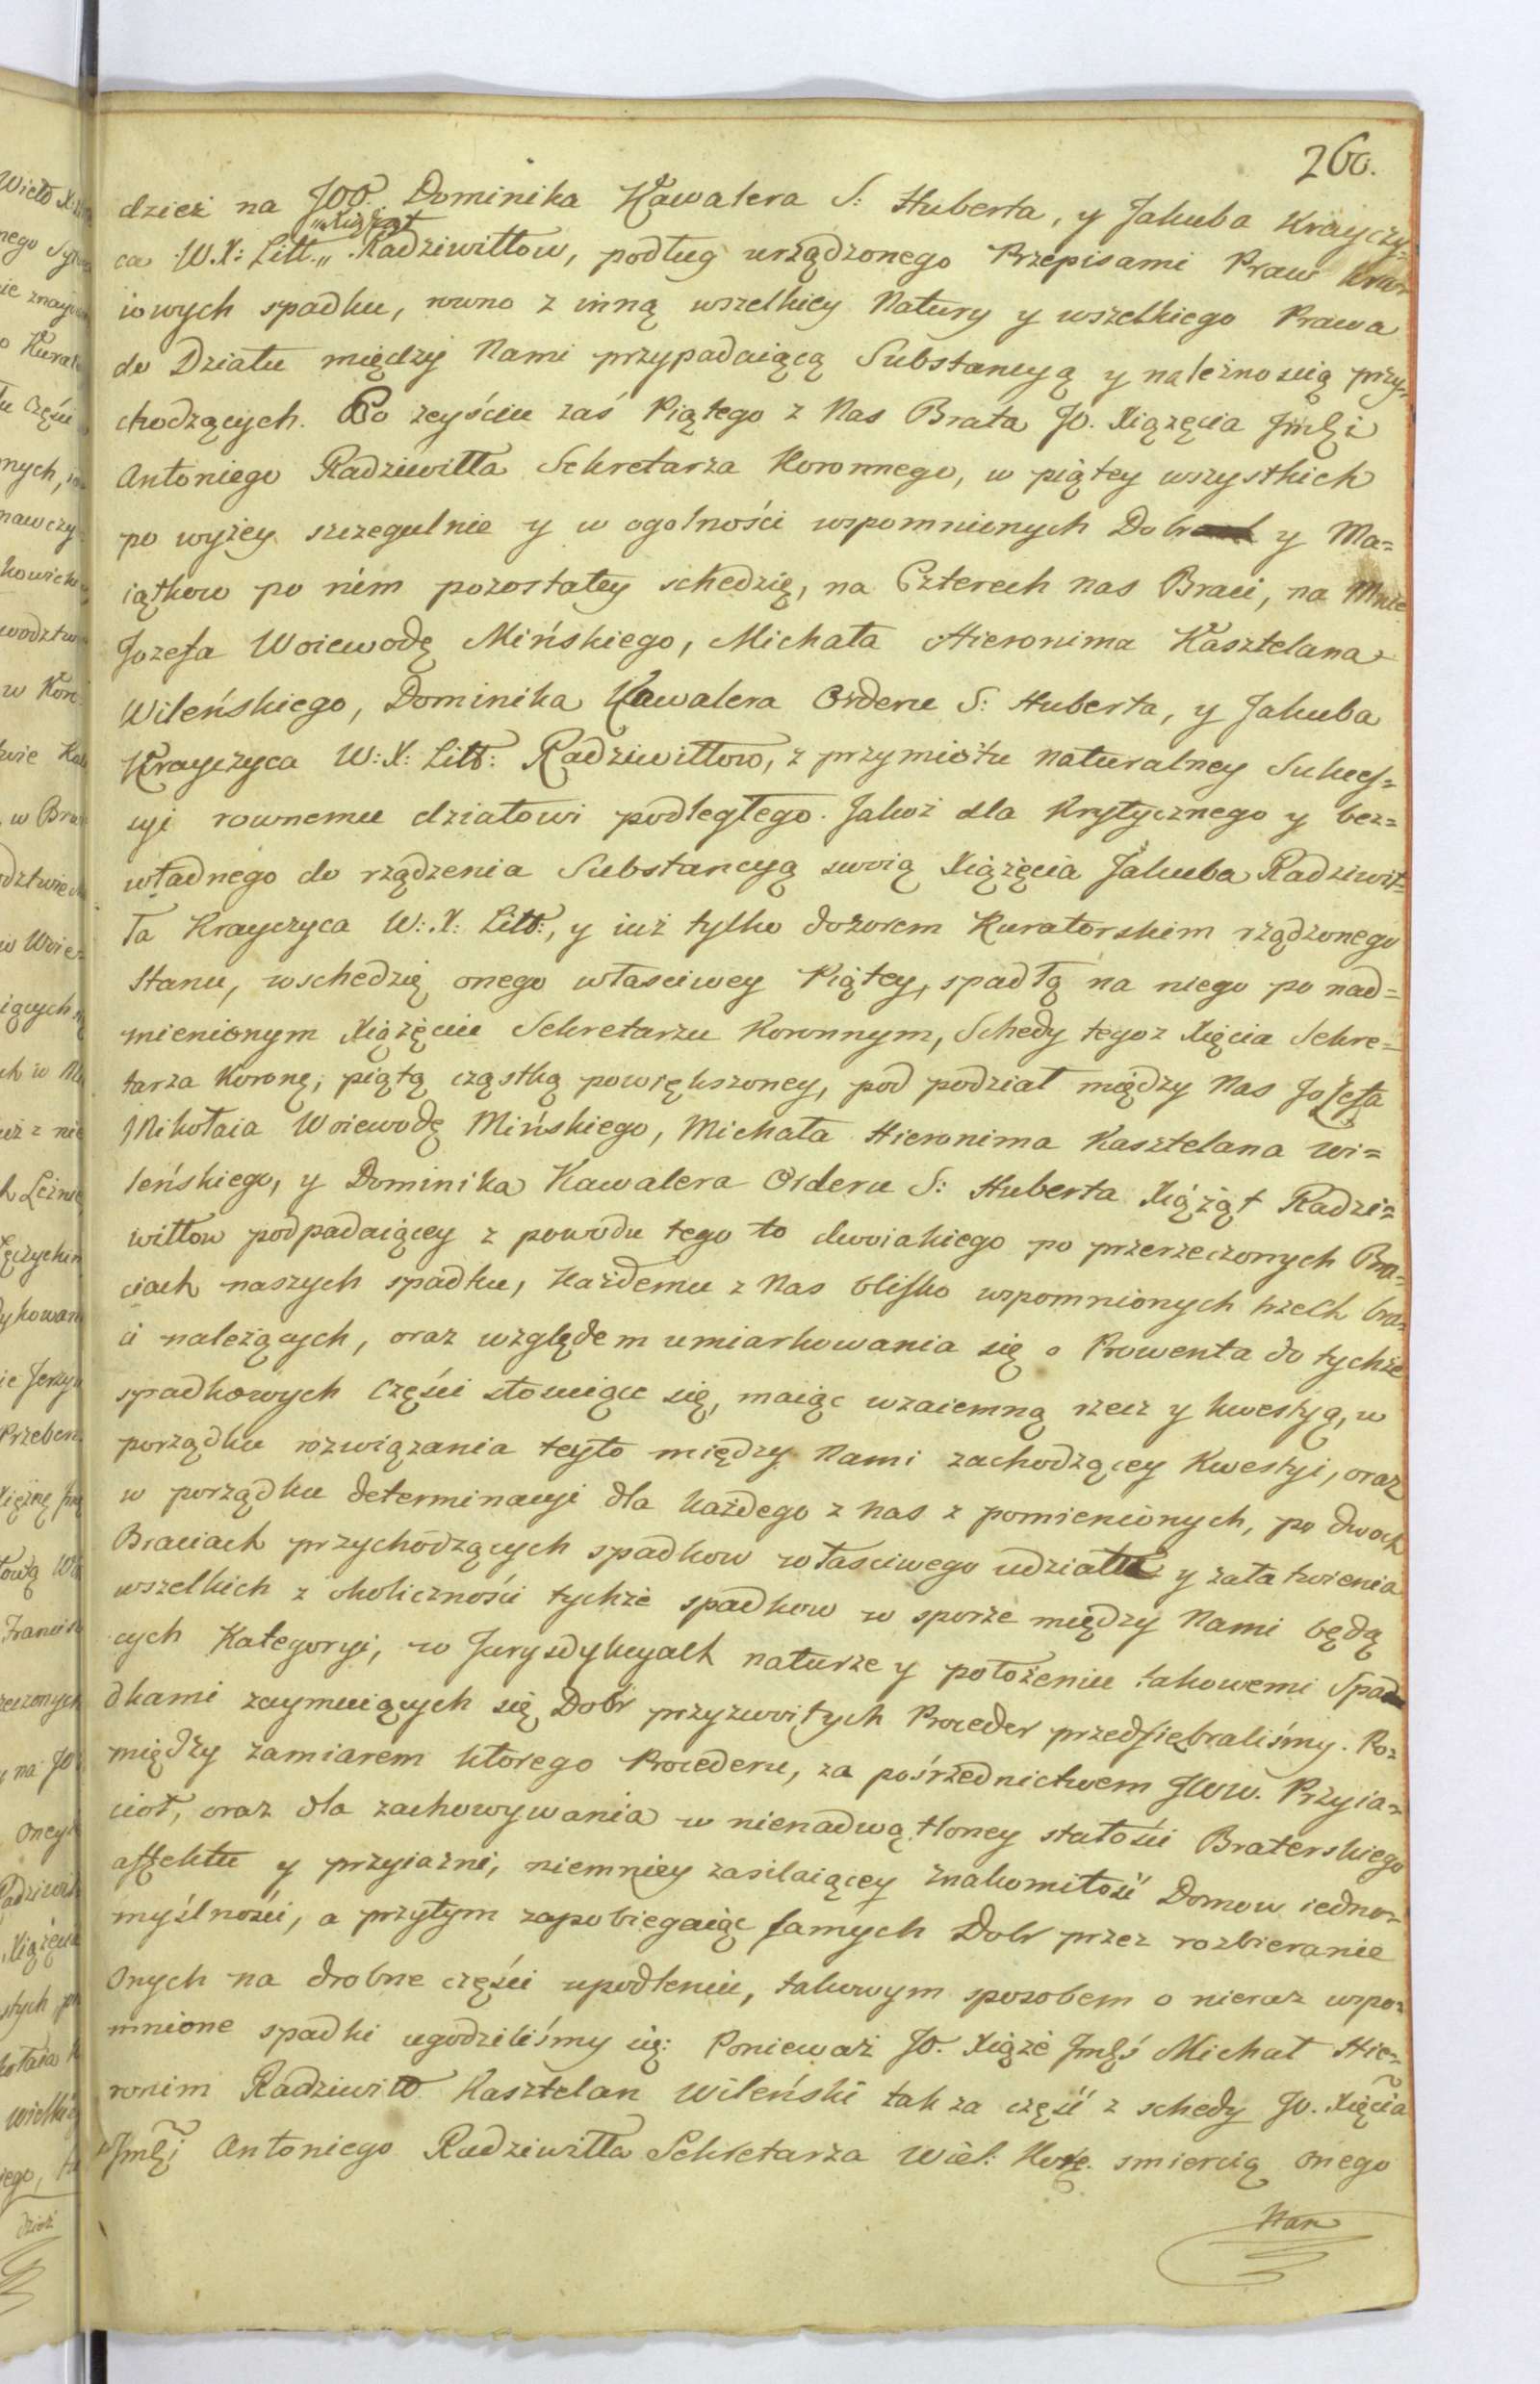 260.
dzież na JOO. Dominika Kawalera S: Huberta, y Jakuba Krayczy=
„Xiążąt
ca W.X: Litt.„ Radziwiłłow, podług urządzonego Przepisami Praw kra=
iowych spadku, rowno z inną wszelkiey Natury y wszelkiego Prawa
do Działu między Nami przypadaiącą Substancyą y należnoscią przy=
chodzących. Po zeyściu zaś Piątego z Nas Brata Jo. Xiążęcia Jmści
Antoniego Radziwiłła Sekretarza Koronnego, w piątey wszystkich
po wyżey szczegulnie y w ogolności wspomnionych Dobr y Ma=
iątkow po nim pozostałey schedzię, na Czterech nas Braci, na Mnie
Jozefa Woiewodę Mińskiego, Michała Hieronima Kasztelana
Wileńskiego, Dominika Kawalera Orderu S: Huberta, y Jakuba
Krayczyca W:X: Litt: Radziwiłłow, z przymiotu naturalney Sukces=
syi rownemu działowi podległego. Jakoż dla Krytycznego y bez=
władnego do rządzenia Substancyą swoią Xiążęcia Jakuba Radziwił=
ła Krayczyca W:X: Litt:, y iuż tylko dozorem Kuratorskim rządzonego
Stanu, wschedzię onego właściwey Piątey, spadłą na niego po nad=
mienionym Xiążęciu Sekretarzu Koronnym, Schedy tegoż Xięcia Sekre=
tarza Koronę; piątą cząstką powiększoney, pod podział między Nas Jozefa
Mikołaia Woiewodę Mińskiego, Michała Hieronima Kasztelana Wi=
leńskiego, y Dominika Kawalera Orderu S: Huberta Xiążąt Radzi=
wiłłow podpadaiącey z powodu tego to dwoiakiego po przerzeczonych Bra=
ciach naszych spadku, Każdemu z Nas blisko wspomnionych trzech bra=
ci należących, oraz względem umiarkowania się o Prowenta do tychże
spadkowych Części stosuiące się, maiąc wzaiemną rzecz y kwestyą, w
porządku rozwiązania teyto między Nami zachodzącey Kwestyi, oraz
w porządku determinacyi dla każdego z Nas z pomienionych, po dwoch
Braciach przychodzących spadkow właściwego udziału y załatwienia
wszelkich z okoliczności tychże spadkow w sporze między Nami będą
cych Kategoryi, w Jurysdykcyach naturze y położeniu takowemi Spa
dkami zaymuiących się Dobr przyzwoitych Proceder przedsiębraliśmy. Po=
między zamiarem ktorego Procederu, za pośrzednictwem JWW. Przyia=
cioł, oraz dla zachowywania w nienadwątloney stałości Braterskiego
affektu y przyiazni, niemniey zasilaiącey Znakomitość Domow iedno=
myślności, a przytym zapobiegaiąc samych Dobr przez rozbieranie
Onych na drobne części upodleniu, takowym sposobem o nieraz wspo=
mnione spadki ugodziliśmy się: Ponieważ Jo. Xiąże Jmść Michał Hie=
ronim Radziwiłł Kasztelan Wileński tak za część z schedy Jo. Xięcia
Jmści Antoniego Radziwiłła Sekretarza Wiel: Korę. smiercią onego
Nan